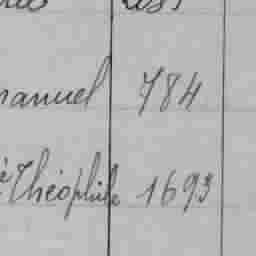 anuel 784
é Théophile 1693